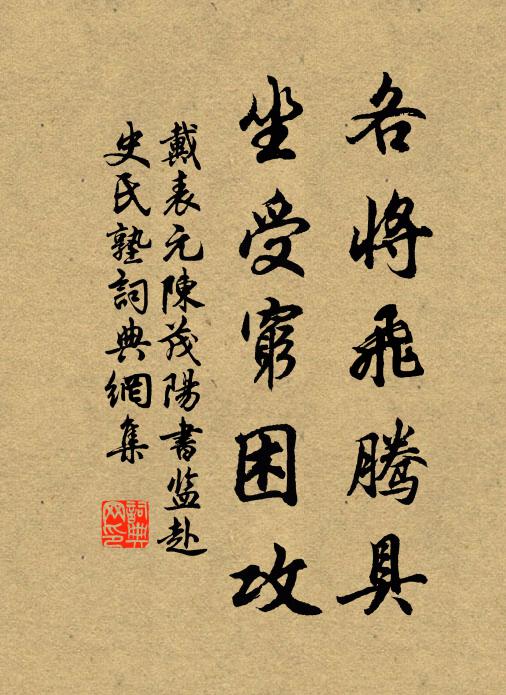 各将飛騰具
坐受窮困攻
戴表元陳茂陽書监赴
史氏塾詞典網集
詞典網印